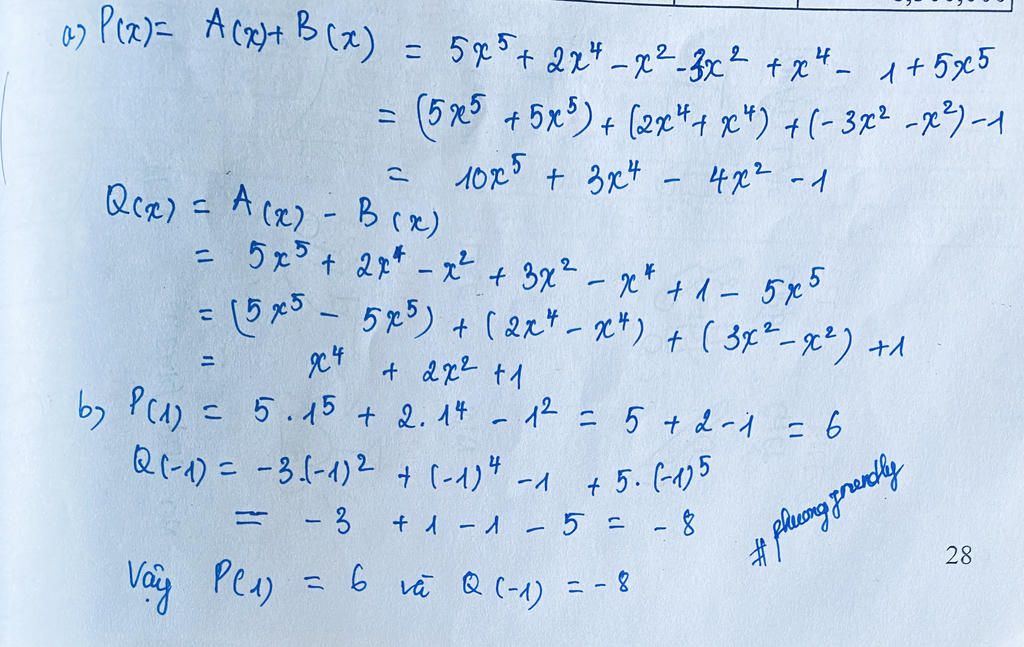 a) P(x) = A(x) + B(x) = 5x⁵ + 2x⁴ - x² - 3x² + x⁴ - 1 + 5x⁵
= (5x⁵ + 5x⁵) + (2x⁴ + x⁴) + (-3x² - x²) - 1
= 10x⁵ + 3x⁴ - 4x² - 1
Q(x) = A(x) - B(x)
= 5x⁵ + 2x⁴ - x² + 3x² - x⁴ + 1 - 5x⁵
= (5x⁵ - 5x⁵) + (2x⁴ - x⁴) + (3x² - x²) + 1
= x⁴ + 2x² + 1
b) P(1) = 5 . 1⁵ + 2. 1⁴ - 1² = 5 + 2 - 1 = 6
Q(-1) = -3.(-1)² + (-1)⁴ - 1 + 5. (-1)⁵
= -3 + 1 - 1 - 5 = -8
Vậy P(1) = 6 và Q(-1) = -8
28